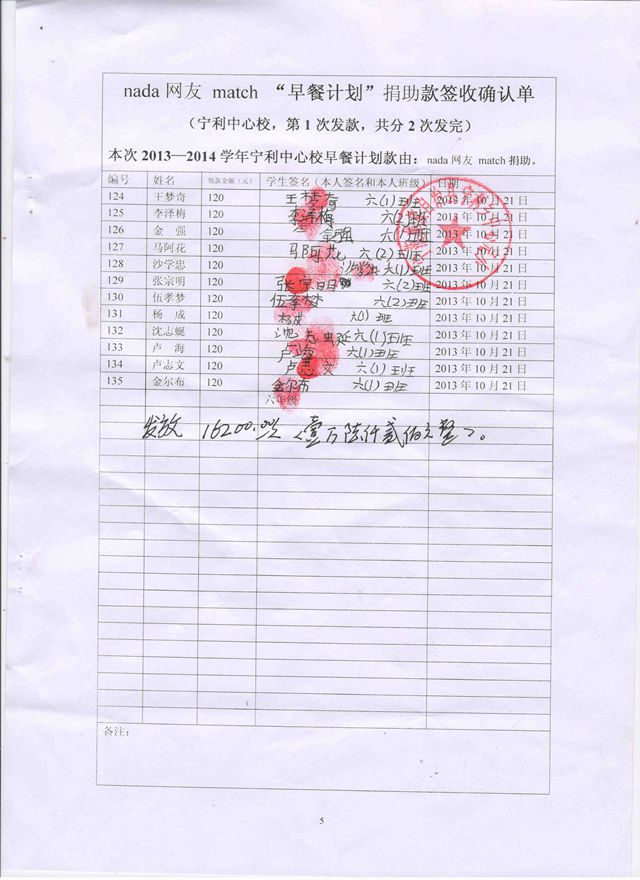 nada 网友 match “早餐计划”捐助款签收确认单
（宁利中心校，第 1 次发款，共分 2 次发完）
本次 2013—2014 学年宁利中心校早餐计划款由：nada 网友 match 捐助。
编号 姓名 领款金额（元） 学生签名（本人签名和本人班级） 日期
124 王梦奇 120 王梦奇 六(1)班 2013 年 10 月 21 日
125 李泽梅 120 李泽梅 六(2)班 2013 年 10 月 21 日
126 金 强 120 金强 六(1)班 2013 年 10 月 21 日
127 马阿花 120 马阿花 六(2)班 2013 年 10 月 21 日
128 沙学忠 120 沙学忠 六(1)班 2013 年 10 月 21 日
129 张宗明 120 张宗明 六(2)班 2013 年 10 月 21 日
130 伍孝梦 120 伍孝梦 六(2)班 2013 年 10 月 21 日
131 杨 成 120 杨成 六(1)班 2013 年 10 月 21 日
132 沈志蜒 120 沈志蜒 六(1)班 2013 年 10 月 21 日
133 卢 海 120 卢海 六(1)班 2013 年 10 月 21 日
134 卢志文 120 卢志文 六(1)班 2013 年 10 月 21 日
135 金尔布 120 金尔布 六(1)班 2013 年 10 月 21 日
六年级
发放 16200.00 （壹万陆仟贰佰元整）。
备注：
5